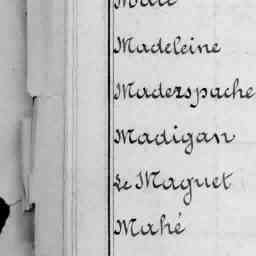 Madeleine
Maderspache
Madigan
Le Maguet
Mahé